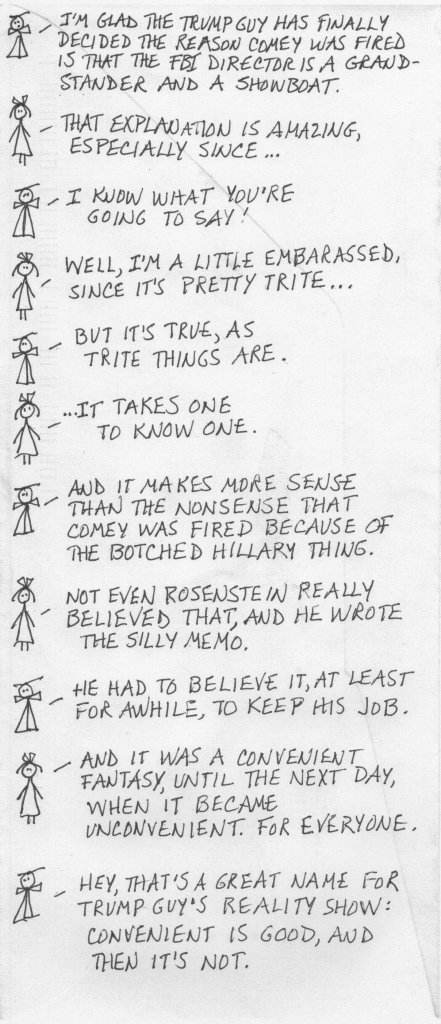 I'M GLAD THE TRUMP GUY HAS FINALLY
DECIDED THE REASON COMEY WAS FIRED
IS THAT THE FBI DIRECTOR IS A GRAND-
STANDER AND A SHOWBOAT.
THAT EXPLANATION IS AMAZING,
ESPECIALLY SINCE...
I KNOW WHAT YOU'RE
GOING TO SAY!
WELL, I'M A LITTLE EMBARASSED,
SINCE IT'S PRETTY TRITE...
BUT IT'S TRUE, AS
TRITE THINGS ARE.
...IT TAKES ONE
TO KNOW ONE.
AND IT MAKES MORE SENSE
THAN THE NONSENSE THAT
COMEY WAS FIRED BECAUSE OF
THE BOTCHED HILLARY THING.
NOT EVEN ROSENSTEIN REALLY
BELIEVED THAT, AND HE WROTE
THE SILLY MEMO.
HE HAD TO BELIEVE IT, AT LEAST
FOR AWHILE, TO KEEP HIS JOB.
AND IT WAS A CONVENIENT
FANTASY, UNTIL THE NEXT DAY,
WHEN IT BECAME
UNCONVENIENT. FOR EVERYONE.
HEY, THAT'S A GREAT NAME FOR
TRUMP GUY'S REALITY SHOW:
CONVENIENT IS GOOD, AND
THEN IT'S NOT.